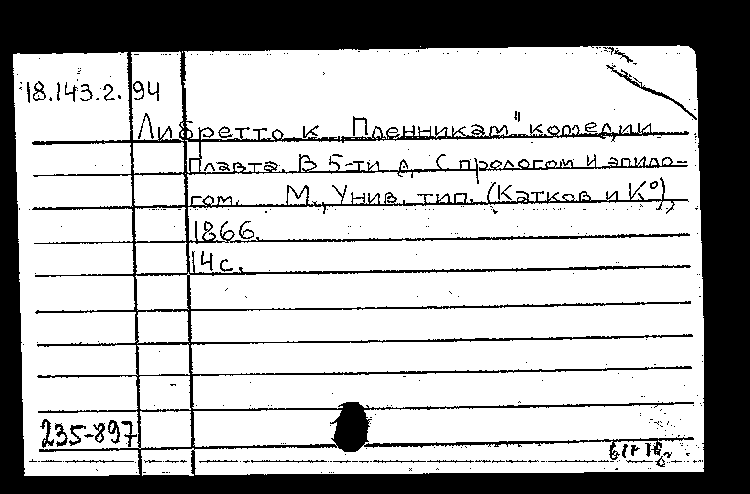 18.143.2.94
Либретто к „Пленникам" комедии
Плавта. В 5-ти д. С прологом и эпило-
гом. М., Унив. тип. (Катков и К°),
1866.
14 с.
235-897